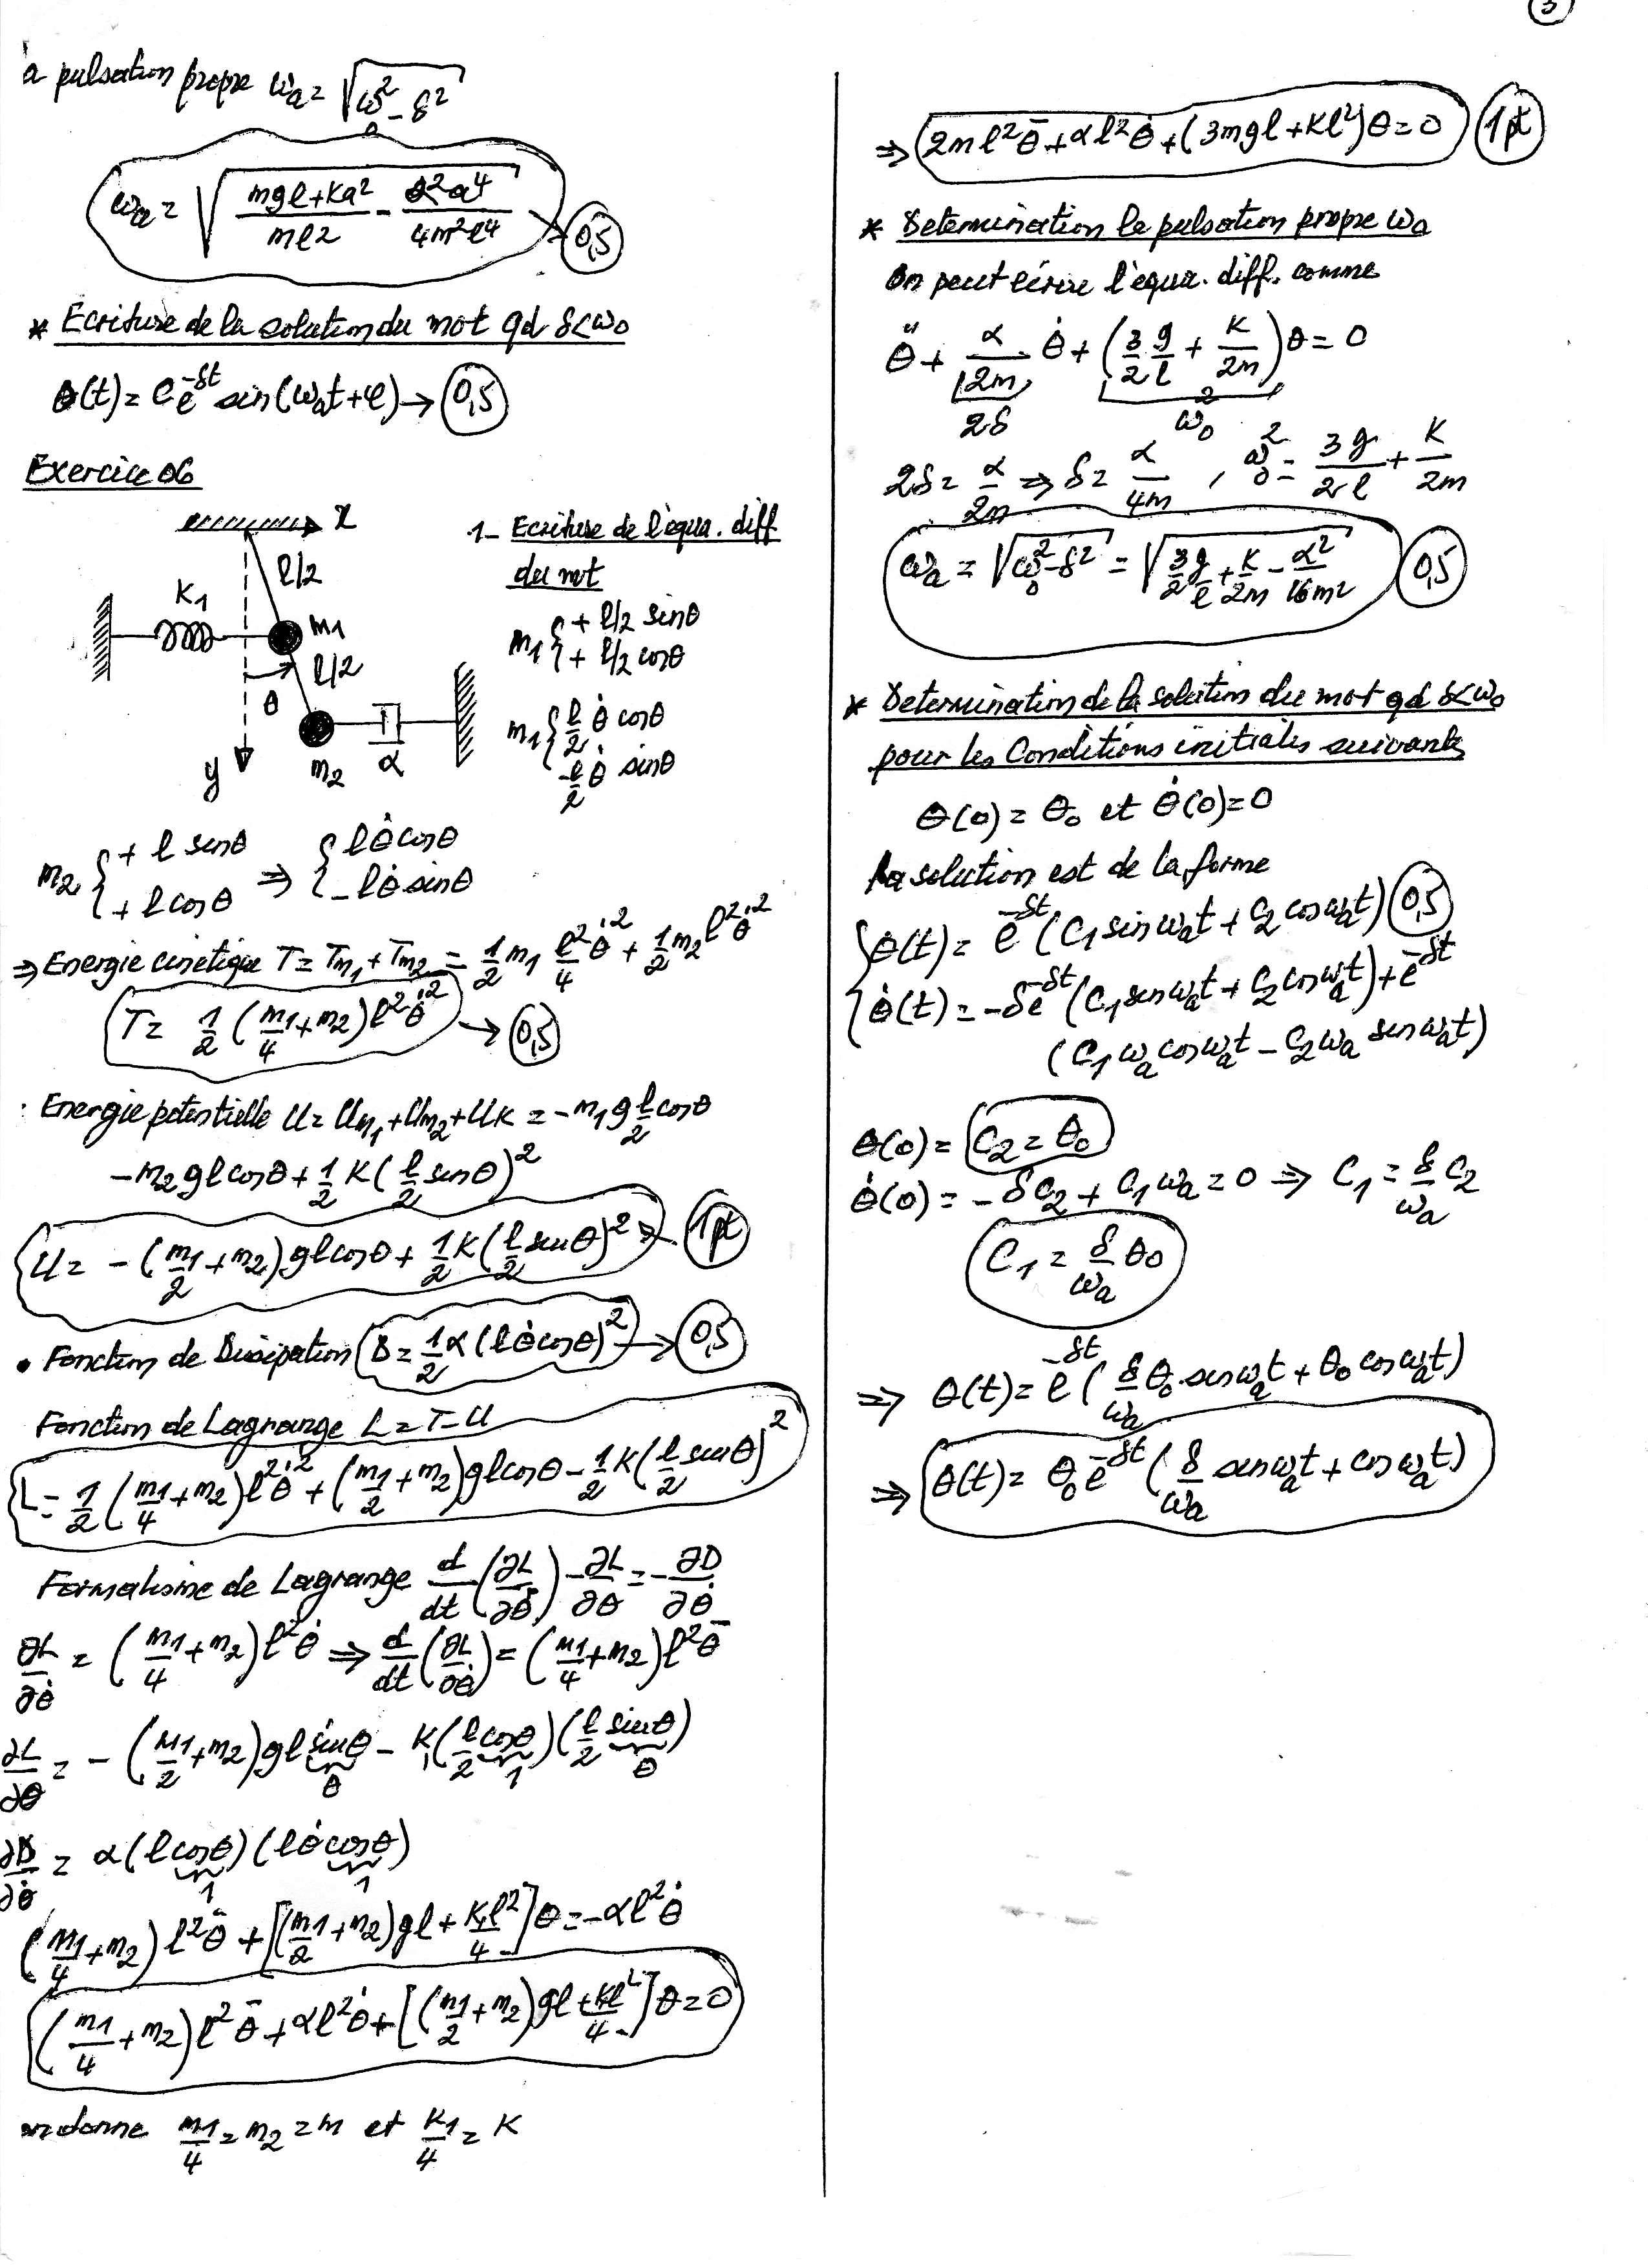 3
a pulsation propre ωa = √(ω0² - δ²)
ωa = √((mgl + Ka²)/(ml²) - (α²a⁴)/(4m²l⁴)) → 0,5
* Ecriture de la solution du mvt qd δ<ω0
θ(t) = C e^(-δt) sin(ωat+φ) → 0,5
Exercice 06
x
l/2
K1
m1
l/2
θ
y
m2
α
1- Ecriture de l'équa. diff
du mvt
m1 { + l/2 sinθ
+ l/2 cosθ
m1 { l/2 θ̇ cosθ
-l/2 θ̇ sinθ
m2 { + l sinθ ⇒ { lθ̇ cosθ
+ l cosθ { -lθ̇ sinθ
⇒ Energie cinetique T = Tm1 + Tm2 = 1/2 m1 l²/4 θ̇² + 1/2 m2 l²θ̇²
T = 1/2 (m1/4 + m2) l²θ̇² → 0,5
· Energie potentielle U = Um1 + Um2 + UK = -m1 g l/2 cosθ
- m2 gl cosθ + 1/2 K (l/2 sinθ)²
U = - (m1/2 + m2) gl cosθ + 1/2 K (l/2 sinθ)² → 1pt
• Fonction de Dissipation D = 1/2 α (lθ̇ cosθ)² → 0,5
Fonction de Lagrange L = T - U
L = 1/2 (m1/4 + m2) l²θ̇² + (m1/2 + m2) gl cosθ - 1/2 K (l/2 sinθ)²
Formalisme de Lagrange d/dt (∂L/∂θ̇) - ∂L/∂θ = - ∂D/∂θ̇
∂L/∂θ̇ = (m1/4 + m2) l²θ̇ ⇒ d/dt (∂L/∂θ̇) = (m1/4 + m2) l²θ̈
∂L/∂θ = - (m1/2 + m2) gl sinθ - K1 (l/2 cosθ)(l/2 sinθ)
θ 1 θ
∂D/∂θ̇ = α (l cosθ)(lθ̇ cosθ)
1 1
(m1/4 + m2) l²θ̈ + [(m1/2 + m2) gl + K1l²/4] θ = -αl²θ̇
(m1/4 + m2) l²θ̈ + αl²θ̇ + [(m1/2 + m2) gl + Kl²/4] θ = 0
on donne m1/4 = m2 = m et K1/4 = K
⇒ 2ml²θ̈ + αl²θ̇ + (3mgl + Kl²)θ = 0 1pt
* Determination la pulsation propre ωa
On peut écrire l'équa. diff. comme
θ̈ + α/2m · θ̇ + (3/2 g/l + K/2m) θ = 0
2δ ω0²
2δ = α/2m ⇒ δ = α/4m , ω0² = 3g/2l + K/2m
ωa = √(ω0² - δ²) = √(3/2 g/l + K/2m - α²/16m²) 0,5
* Determination de la solution du mvt qd δ<ω0
pour les Conditions initiales suivantes
θ(0) = θ0 et θ̇(0) = 0
La solution est de la forme
{ θ(t) = e^(-δt) (C1 sin ωat + C2 cos ωat) 0,5
{ θ̇(t) = -δe^(-δt) (C1 sin ωat + C2 cos ωat) + e^(-δt)
(C1 ωa cos ωat - C2 ωa sin ωat)
θ(0) = C2 = θ0
θ̇(0) = -δC2 + C1 ωa = 0 ⇒ C1 = δ/ωa C2
C1 = δ/ωa θ0
⇒ θ(t) = e^(-δt) (δ/ωa θ0 sin ωat + θ0 cos ωat)
⇒ θ(t) = θ0 e^(-δt) (δ/ωa sin ωat + cos ωat)